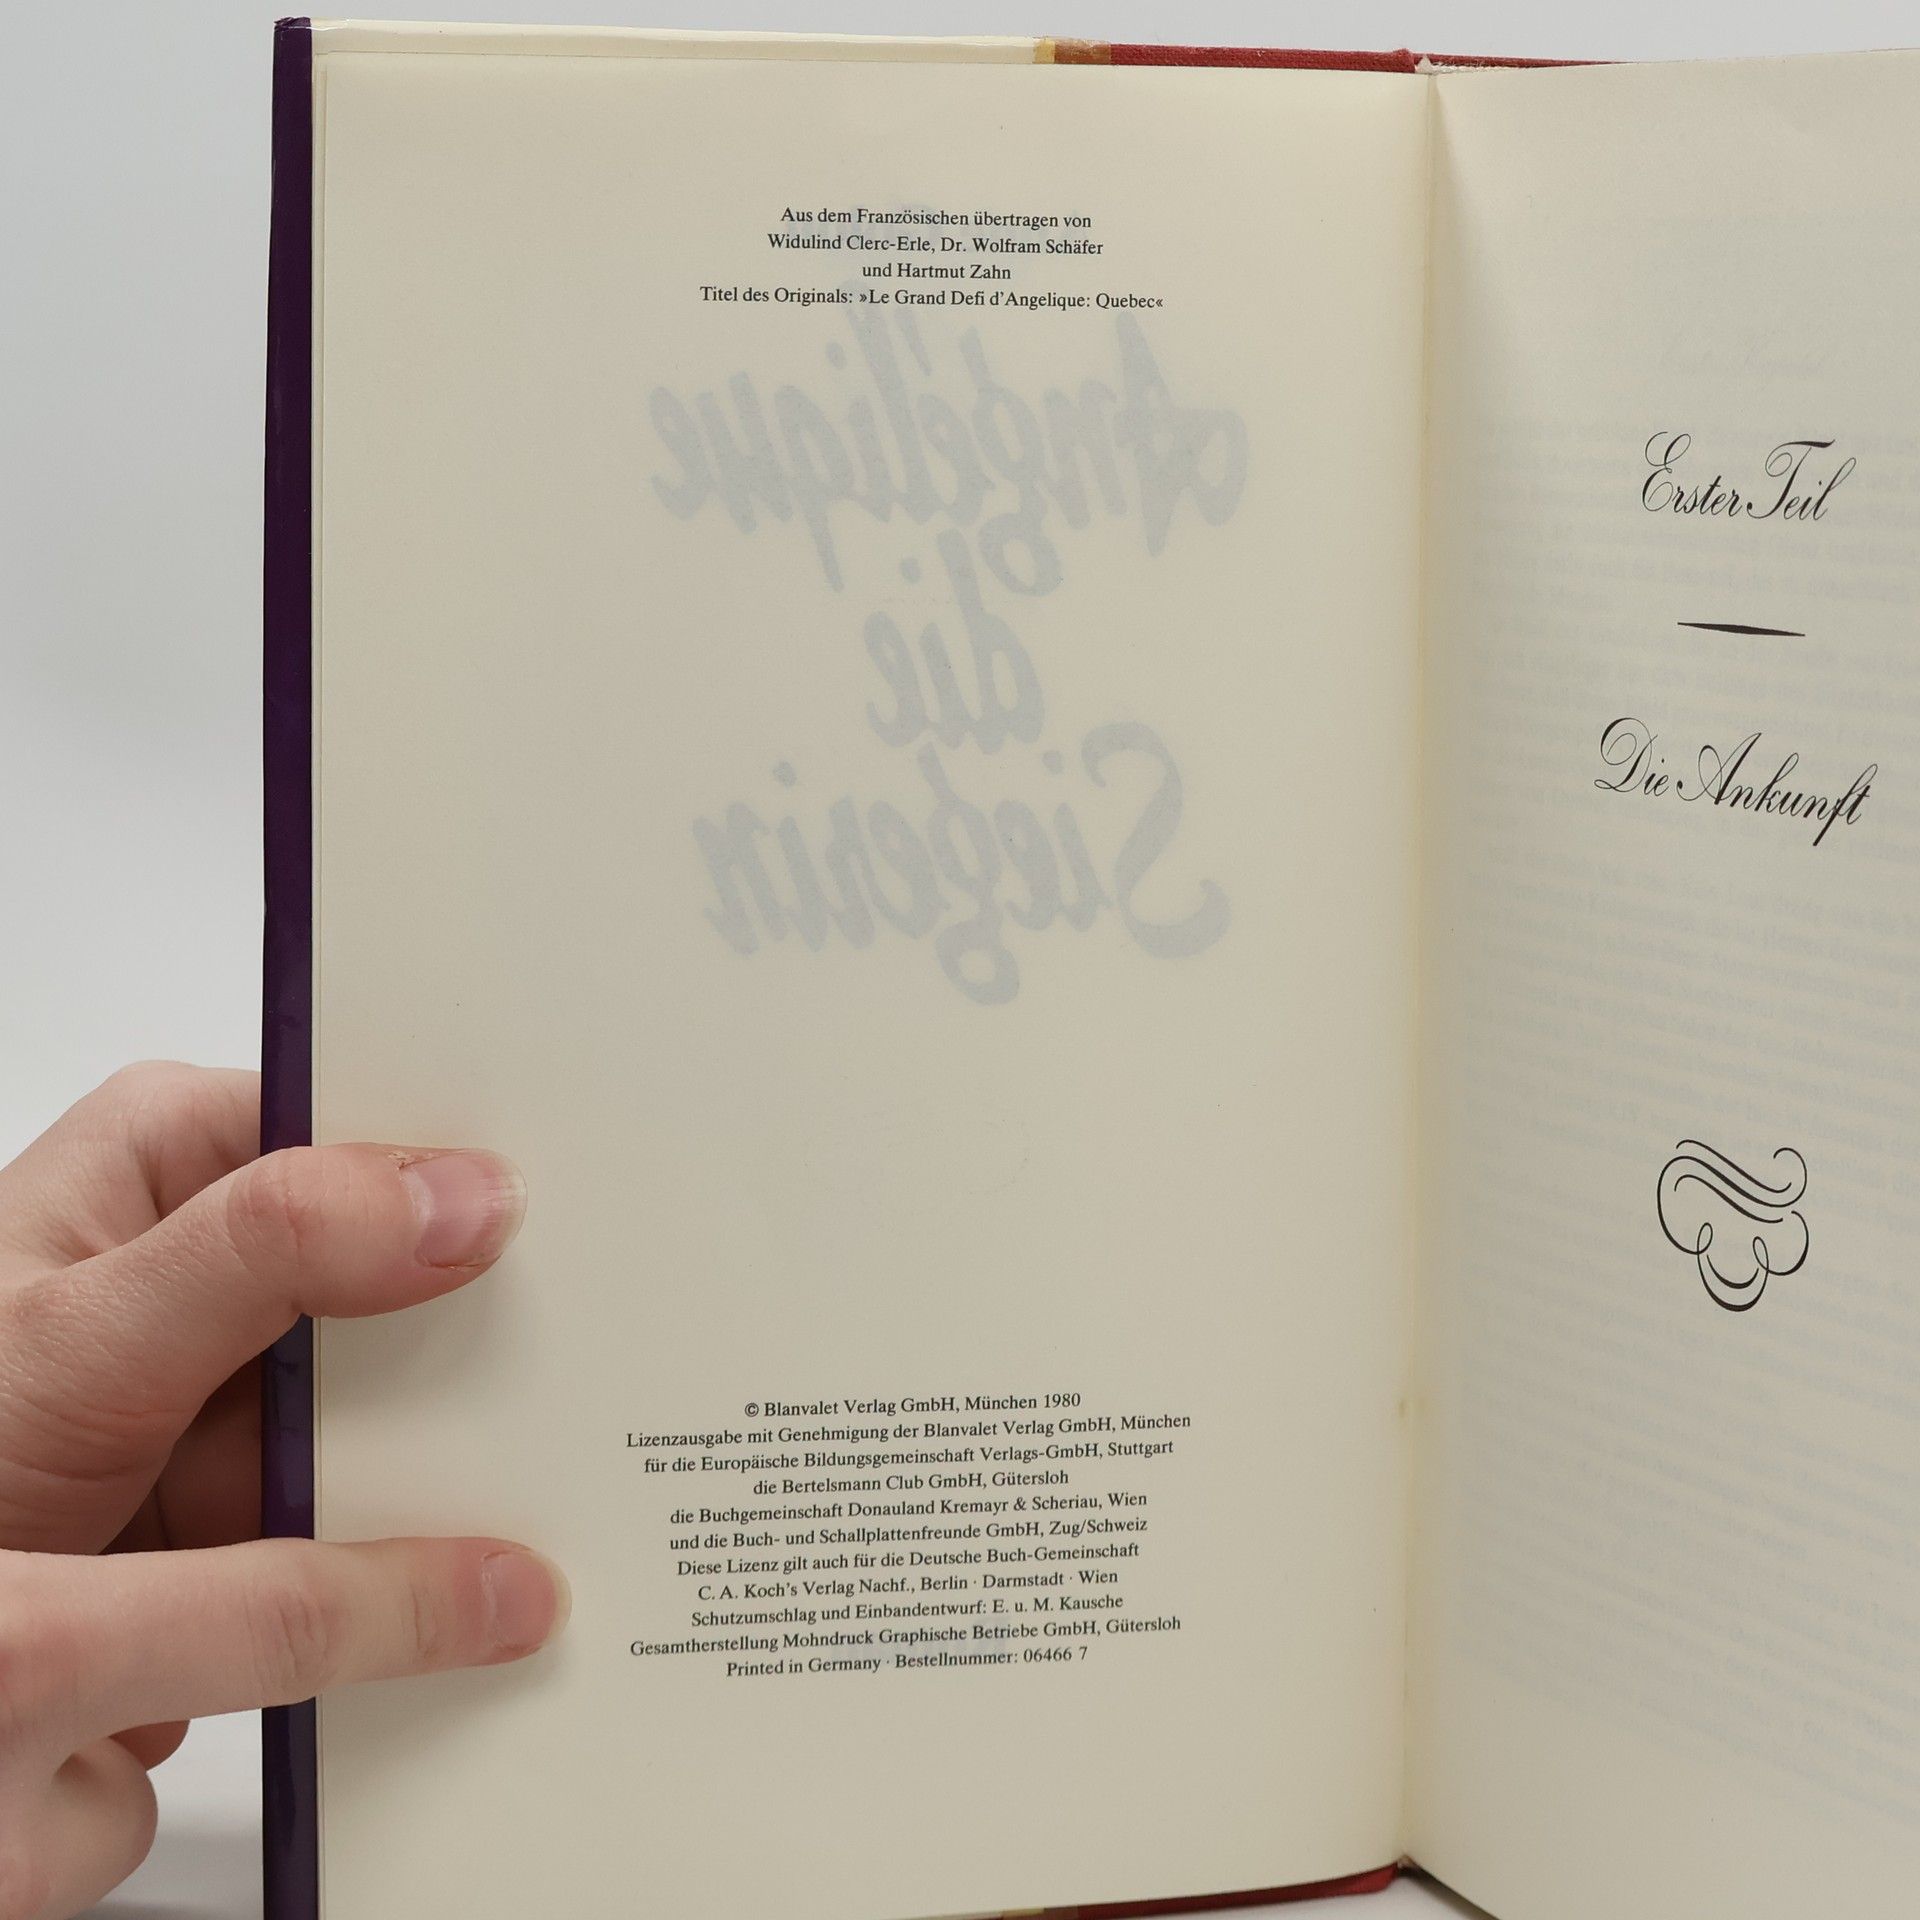 Aus dem Französischen übertragen von
Widulind Clerc-Erle, Dr. Wolfram Schäfer
und Hartmut Zahn
Titel des Originals: »Le Grand Defi d'Angelique: Quebec«
Angélique
die
Siegerin
© Blanvalet Verlag GmbH, München 1980
Lizenzausgabe mit Genehmigung der Blanvalet Verlag GmbH, München
für die Europäische Bildungsgemeinschaft Verlags-GmbH, Stuttgart
die Bertelsmann Club GmbH, Gütersloh
die Buchgemeinschaft Donauland Kremayr & Scheriau, Wien
und die Buch- und Schallplattenfreunde GmbH, Zug/Schweiz
Diese Lizenz gilt auch für die Deutsche Buch-Gemeinschaft
C. A. Koch's Verlag Nachf., Berlin · Darmstadt · Wien
Schutzumschlag und Einbandentwurf: E. u. M. Kausche
Gesamtherstellung Mohndruck Graphische Betriebe GmbH, Gütersloh
Printed in Germany · Bestellnummer: 06466 7
Erster Teil
Die Ankunft